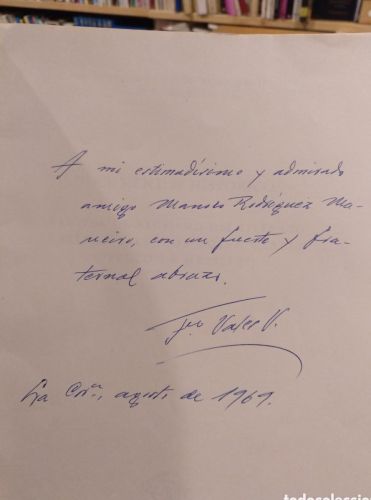 A mi estimadísimo y admirado
amigo Manolo Rodríguez Ma-
neiro, con un fuerte y fra-
ternal abrazo.
Fco Vales V.
La Cña, agosto de 1969.
todocoleccion